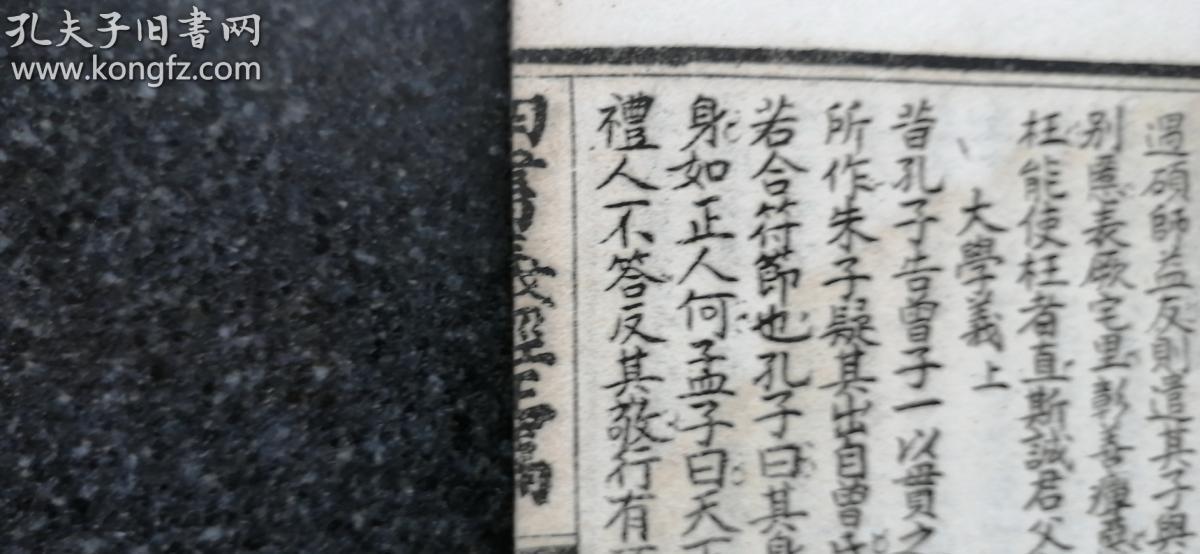 孔夫子旧書网
www.kongfz.com
過碩師益友則遣其子與
別慝表厥宅里彰善癉惡
枉能使枉者直斯誠君父
大學義上
昔孔子告曾子一以貫之
所作朱子疑其出自曾氏
若合符節也孔子曰其身
身如正人何孟子曰天下
禮人不答反其敬行有